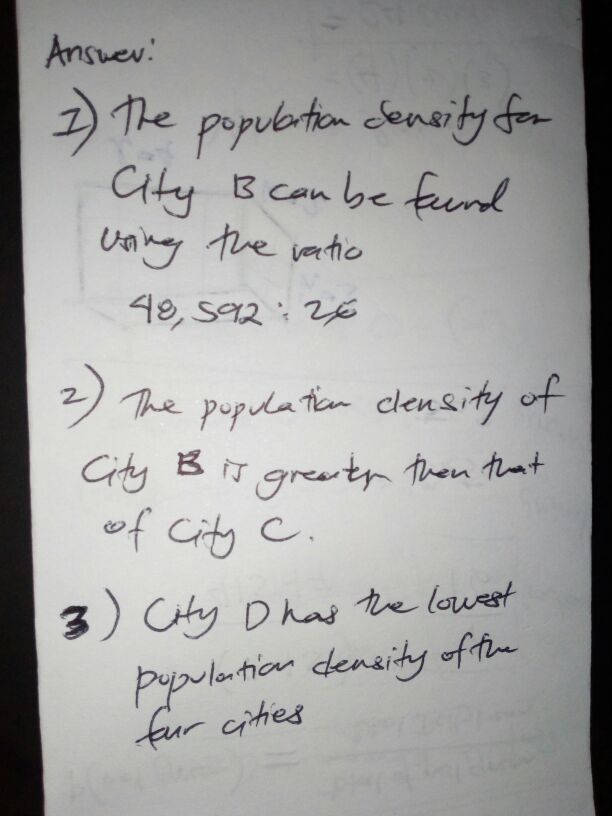 Answer:
1) The population density for
City B can be found
using the ratio
48,592 : 26
2) The population density of
City B is greater than that
of City C.
3) City D has the lowest
population density of the
four cities